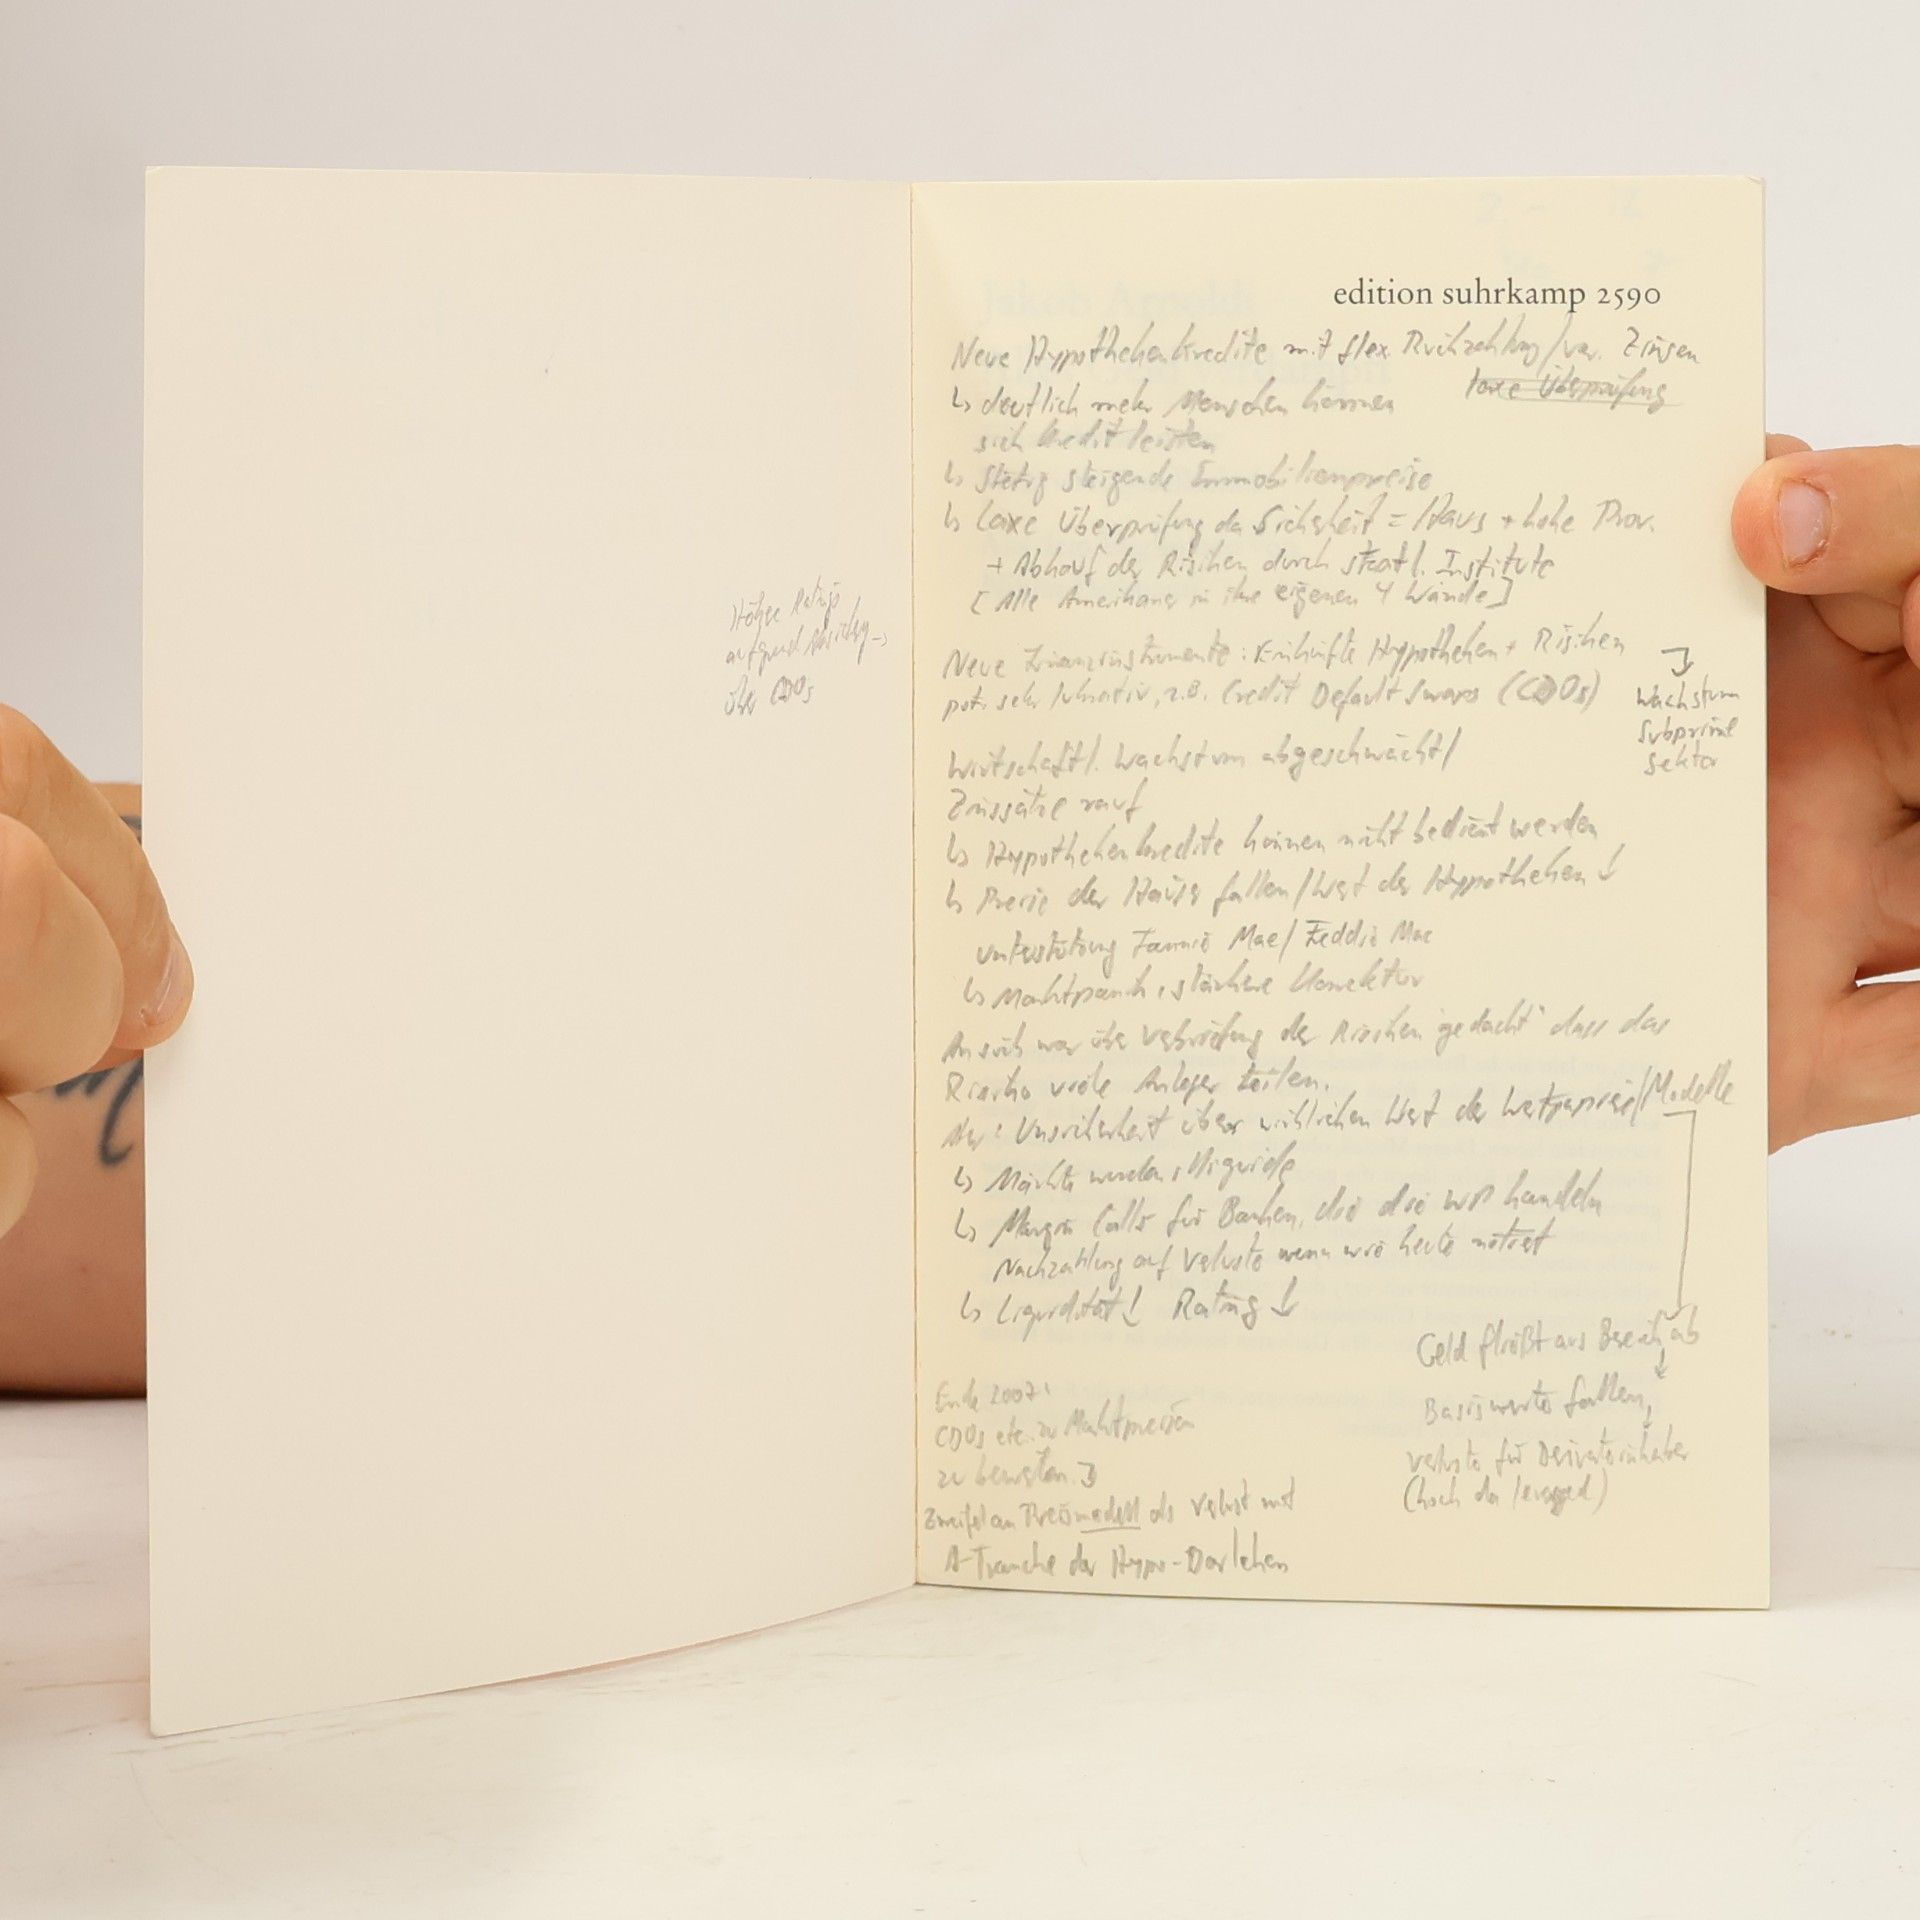 Höhere Ratings
aufgrund Absicherg →
über CDOs
edition suhrkamp 2590
Neue Hypothekenkredite mit flex. Rückzahlung/var. Zinsen
laxe Überprüfung
↳ deutlich mehr Menschen können
sich Kredit leisten
↳ Stetig steigende Immobilienpreise
↳ laxe Überprüfung da Sicherheit = Haus + hohe Prov.
+ Abkauf der Risiken durch staatl. Institute
[Alle Amerikaner in ihre eigenen 4 Wände]
Neue Finanzinstrumente: Hypotheken + Risiken
pot. sehr lukrativ, z.B. Credit Default Swaps (CDOs)
Wachstum
Subprime
Sektor
Wirtschaftl. Wachstum abgeschwächt/
Zinssätze rauf
↳ Hypothekenkredite können nicht bedient werden
↳ Preise der Häuser fallen/Wert der Hypotheken ↓
Unterstützung Fannie Mae/Freddie Mac
↳ Marktpanik, stärkere Korrektur
An sich war über Verbriefung der Risiken "gedacht" dass das
Risiko viele Anleger teilen.
Aber: Unsicherheit über wirklichen Wert der Wertpapiere/Modelle
↳ Märkte werden illiquide
↳ Margin Calls für Banken, die die WP handeln
Nachzahlung auf Verluste wenn wie heute
↳ Liquidität ↓ Rating ↓
Geld fließt aus Bereich ab
Basiswerte fallen,
Verluste für Derivateinhaber
(hoch da leveraged)
Ende 2007:
CDOs etc. zu Marktpreisen
zu bewerten.
Zweifel an Preismodell als Verlust mit
A-Tranche der Hypo-Darlehen